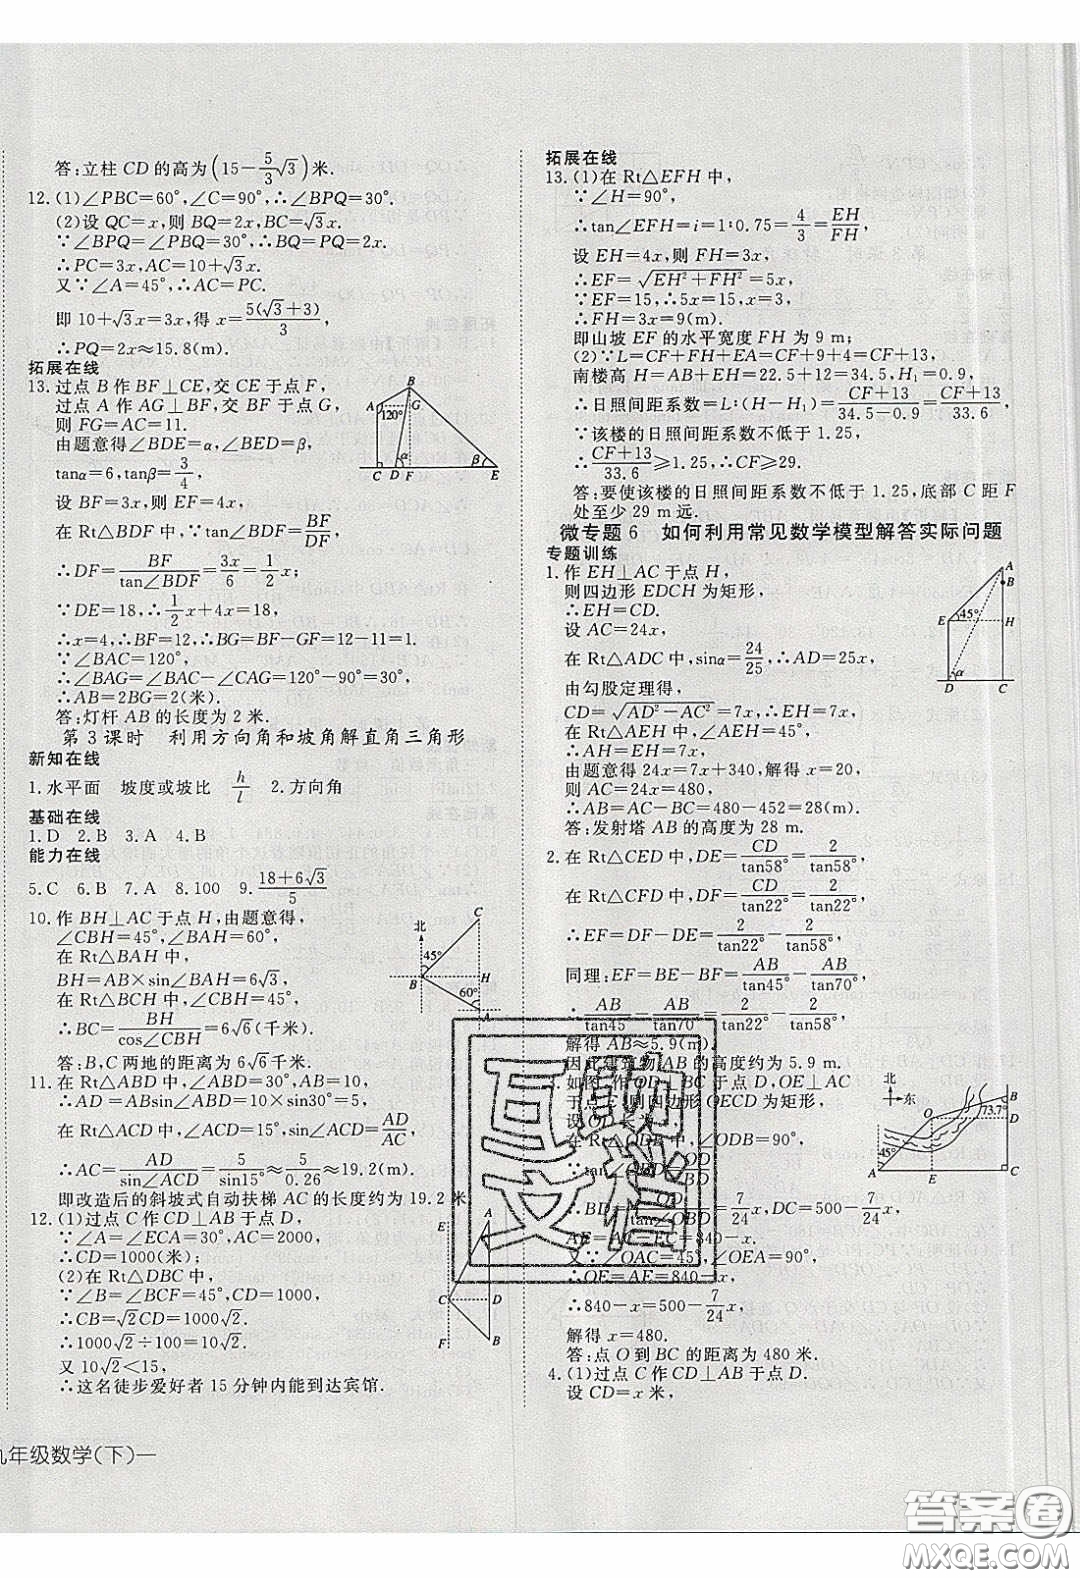 答:立柱 CD 的高为(15−5/3√3)米.
12.(1)∠PBC=60°,∠C=90°,∴∠BPQ=30°.
(2)设 QC=x,则 BQ=2x,BC=√3x.
∵∠BPQ=∠PBQ=30°,∴BQ=PQ=2x.
∴PC=3x,AC=10+√3x.
又∵∠A=45°,∴AC=PC.
即 10+√3x=3x,得 x=5(√3+3)/3,
∴PQ=2x≈15.8(m).
拓展在线
13.过点 B 作 BF⊥CE,交 CE 于点 F,
过点 A 作 AG⊥BF,交 BF 于点 G,
则 FG=AC=11.
由题意得∠BDE=α,∠BED=β,
tanα=6,tanβ=3/4,
设 BF=3x,则 EF=4x,
在 Rt△BDF 中,∵tan∠BDF=BF/DF,
∴DF=BF/tan∠BDF=3x/6=1/2x;
∵DE=18,∴1/2x+4x=18.
∴x=4,∴BF=12,∴BG=BF−GF=12−11=1.
∵∠BAC=120°,
∴∠BAG=∠BAC−∠CAG=120°−90°=30°,
∴AB=2BG=2(米).
答:灯杆 AB 的长度为 2 米.
B
A
120°
G
α
β
C D F E
第 3 课时 利用方向角和坡角解直角三角形
新知在线
1.水平面 坡度或坡比 h/l 2.方向角
基础在线
1.D 2.B 3.A 4.B
能力在线
5.C 6.B 7.A 8.100 9.18+6√3/5
10.作 BH⊥AC 于点 H,由题意得,
∠CBH=45°,∠BAH=60°,
在 Rt△BAH 中,
BH=AB×sin∠BAH=6√3,
在 Rt△BCH 中,∠CBH=45°,
∴BC=BH/cos∠CBH=6√6(千米).
答:B,C 两地的距离为 6√6千米.
北
C
45°
B
H
60°
A
11.在 Rt△ABD 中,∠ABD=30°,AB=10,
∴AD=ABsin∠ABD=10×sin30°=5.
在 Rt△ACD 中,∠ACD=15°,sin∠ACD=AD/AC,
∴AC=AD/sin∠ACD=5/sin15°≈5/0.26≈19.2(m).
即改造后的斜坡式自动扶梯 AC 的长度约为 19.2 米.
12.(1)过点 C 作 CD⊥AB 于点 D,
∵∠A=∠ECA=30°,AC=2000,
∴CD=1000(米);
(2)在 Rt△DBC 中,
∵∠B=∠BCF=45°,CD=1000,
∴CB=√2CD=1000√2.
∴1000√2÷100=10√2.
又 10√2<15,
∴这名徒步爱好者 15 分钟内能到达宾馆.
E A
C D
F B
九年级数学(下)—
拓展在线
13.(1)在 Rt△EFH 中,
∵∠H=90°,
∴tan∠EFH=i=1:0.75=4/3=EH/FH,
设 EH=4x,则 FH=3x,
∴EF=√(EH²+FH²)=5x,
∵EF=15,∴5x=15,x=3,
∴FH=3x=9(m).
即山坡 EF 的水平宽度 FH 为 9 m;
(2)∵L=CF+FH+EA=CF+9+4=CF+13,
南楼高 H=AB+EH=22.5+12=34.5,H₁=0.9,
∴日照间距系数=L:(H−H₁)=CF+13/34.5−0.9=CF+13/33.6,
∵该楼的日照间距系数不低于 1.25,
∴CF+13/33.6≥1.25,∴CF≥29.
答:要使该楼的日照间距系数不低于 1.25,底部 C 距 F
处至少 29 m远.
微专题 6 如何利用常见数学模型解答实际问题
专题训练
1.作 EH⊥AC 于点 H,
则四边形 EDCH 为矩形,
∴EH=CD.
设 AC=24x,
在 Rt△ADC 中,sinα=24/25,∴AD=25x,
由勾股定理得,
CD=√(AD²−AC²)=7x,∴EH=7x,
在 Rt△AEH 中,∠AEH=45°,
∴AH=EH=7x,
由题意得 24x=7x+340,解得 x=20,
则 AC=24x=480,
∴AB=AC−BC=480−452=28(m).
答:发射塔 AB 的高度为 28 m.
A
B
E 45° H
α
D C
2.在 Rt△CED 中,DE=CD/tan58°=2/tan58°,
在 Rt△CFD 中,DF=CD/tan22°=2/tan22°,
∴EF=DF−DE=2/tan22°−2/tan58°,
同理:EF=BE−BF=AB/tan45°−AB/tan70°,
∴AB/tan45°−AB/tan70°=2/tan22°−2/tan58°,
解得 AB≈5.9(m).
因此建筑物 AB 的高度约为 5.9 m.
如图,作 OD⊥BC 于点 D,OE⊥AC
于点 E,则四边形 OECD 为矩形,
设 OD 长为 x,
在 Rt△ODB 中,∠ODB=90°,
7/24x,DC=500−7/24x,
AE=AC−EC=840−x.
又∵∠OAC=45°,∠OEA=90°,
∴OE=AE=840−x,
∴840−x=500−7/24x,
解得 x=480.
答:点 O 到 BC 的距离为 480 米.
4.(1)过点 C 作 CD⊥AB 于点 D.
设 CD=x 米,
北
东
O
B
73.7°
D
45°
A E C
互助文档
答案圈
MXQE.COM